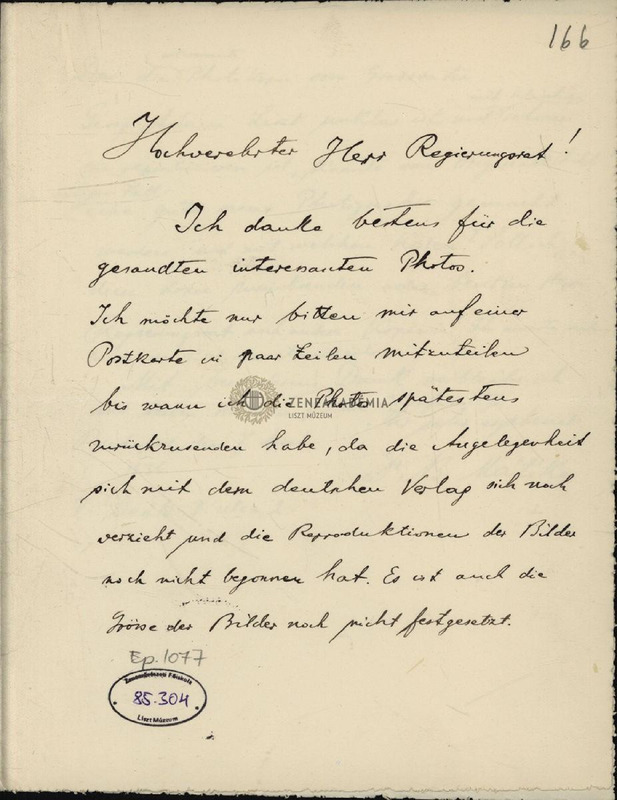 166
Hochverehrter Herr Regierungsrat!
Ich danke bestens für die
gesandten interessanten Photos.
Ich möchte nur bitten mir auf einer
Postkarte in paar Zeilen mitzuteilen
bis wann ich die Photos spätestens
ZENEAKADEMIA
LISZT MÚZEUM
zurückzusenden habe, da die Angelegenheit
sich mit dem deutschen Verlag sich noch
verzieht und die Reproduktionen der Bilder
noch nicht begonnen hat. Es ist auch die
Grösse der Bilder noch nicht festgesetzt.
Ep. 1077
Zeneművészeti Főiskola
85.304
Liszt Múzeum